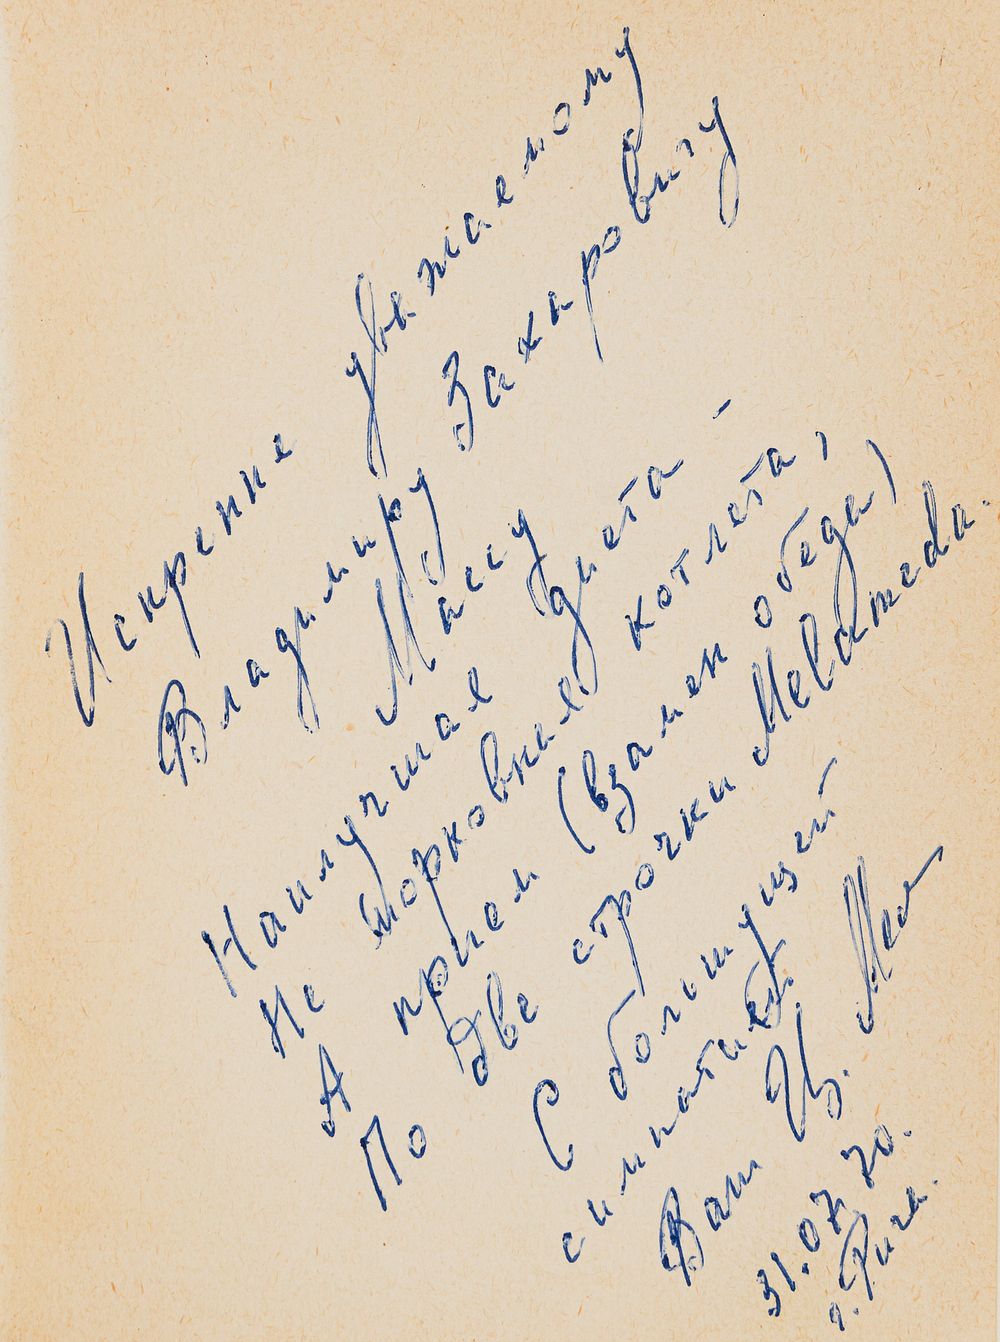 Искренне уважаемому
Владимиру Захаровичу
Массу
Наилучшая диета —
Не морковная котлета,
А прием (взамен обеда)
По две строчки Меламеда.
С большущей
симпатией
Ваш Цв. Мел
31.07.70.
г. Рига.